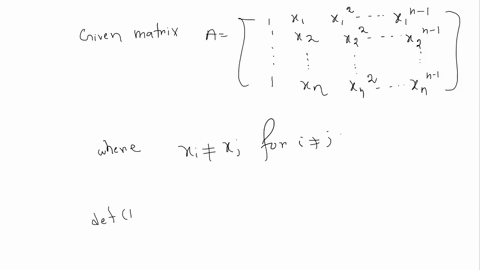 Given matrix A= [ 1 x₁ x₁² ---- x₁ⁿ⁻¹
1 x₂ x₂² ---- x₂ⁿ⁻¹
⋮ ⋮ ⋮ ⋮
1 xₙ xₙ² ---- xₙⁿ⁻¹ ]
where xᵢ ≠ xⱼ for i ≠ j
det(1